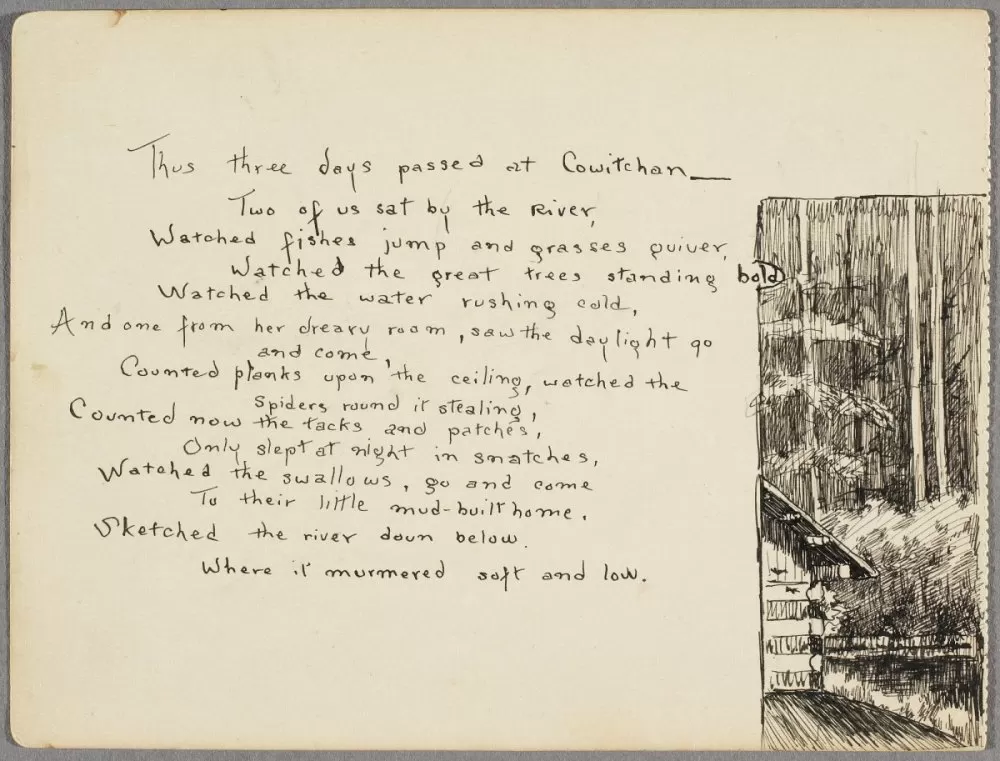 Thus three days passed at Cowitchan—
Two of us sat by the River,
Watched fishes jump and grasses quiver,
Watched the great trees standing bold
Watched the water rushing cold,
And one from her dreary room, saw the daylight go
and come,
Counted planks upon the ceiling, watched the
Spiders round it stealing,
Counted now the tacks and patches,
Only slept at night in snatches,
Watched the swallows, go and come
To their little mud-built home.
Sketched the river down below.
Where it murmered soft and low.